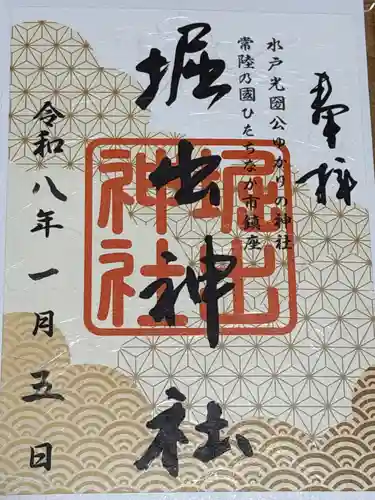 奉拝
水戸光圀公ゆかりの神社
常陸乃國ひたちなか市鎮座
堀出神社
堀出
神社
令和八年一月五日